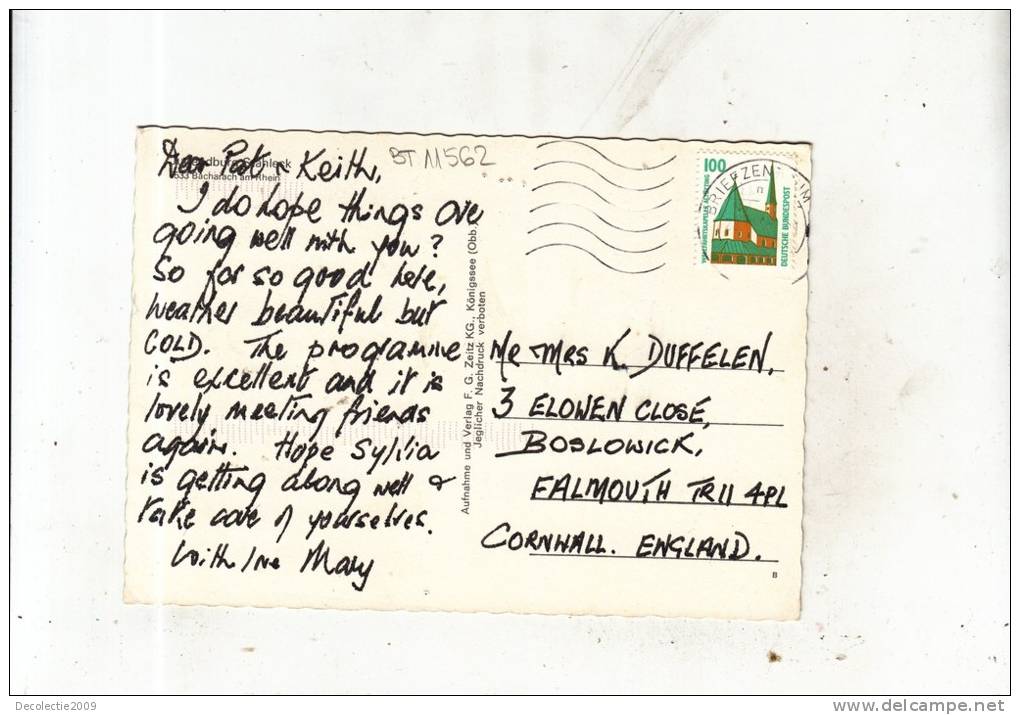 Dear Pat & Keith,
I do hope things are
going well with you?
So far so good here,
weather beautiful but
COLD. The programme
is excellent and it is
lovely meeting friends
again. Hope Sylvia
is getting along well &
take care of yourselves.
With love Mary
Stahleck
6533 Bacharach am Rhein
BT 11562
Aufnahme und Verlag F. G. Zeitz KG., Königssee (Obb.)
Jeglicher Nachdruck verboten
100
DEUTSCHE BUNDESPOST
BRIEFZEN UM
MR & MRS K. DUFFELEN,
3 ELOWEN CLOSE,
BOSLOWICK,
FALMOUTH TR11 4PL
CORNWALL. ENGLAND.
B
Decolectie2009
www.delcampe.net